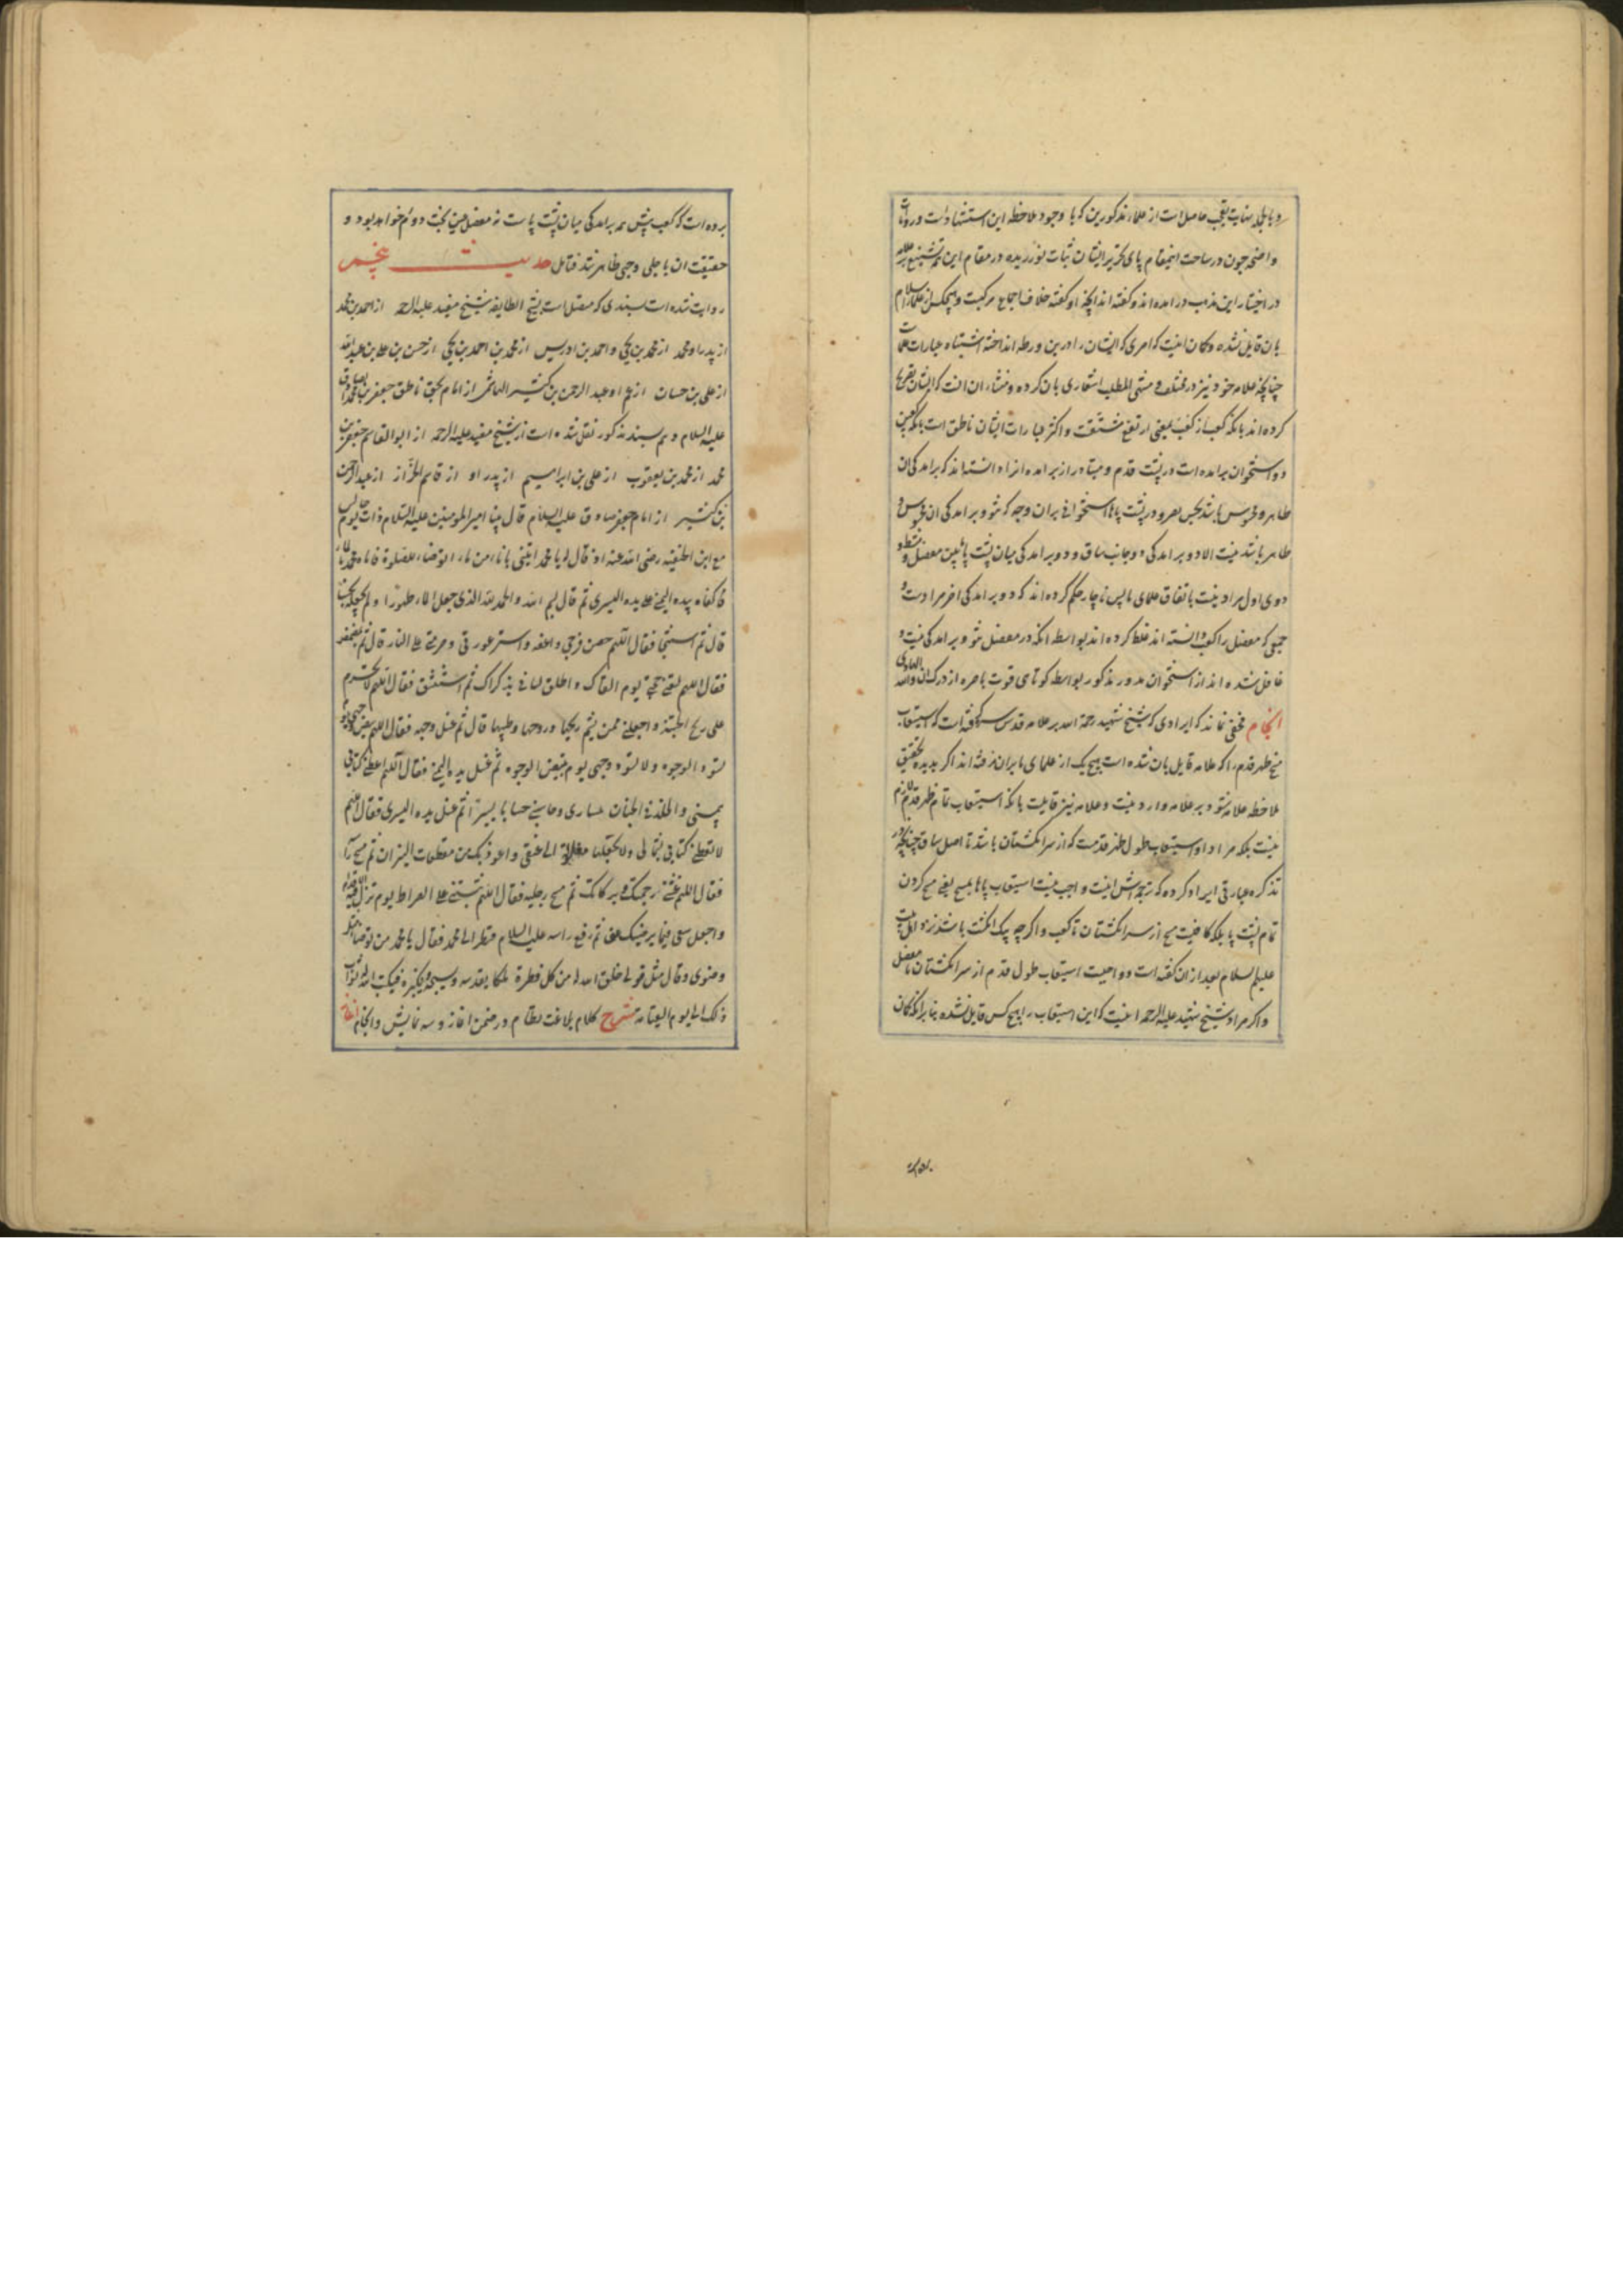 و بالجمله نهایت تعجب حاصل است از علماء مذکورین که با وجود ملاحظه این استشهادات و روایات
واضحه چون در ساحت اینمقام پای تحریر ایشان ثبات نورزیده و در مقام این همه تشنیع بر علامه
در اختیار این مذهب در امده اند و گفته اند انچه او گفته خلاف اجماع مرکبست و هیچکس از علماء اسلام
بان قایل نشده و گمان اینست که امری که ایشان را در این ورطه انداخته اشتباه عبارات علماست
چنانچه علامه خود نیز در مختلف و منتهی المطلب اشعاری بان کرده و منشاء ان انست که ایشان تصریح
کرده اند بانکه کعب از کعب بمعنی ارتفع مشتقست و اکثر عبارات ایشان ناطق است بانکه کعبین
دو استخوان برامده است در پشت قدم و متبادر از برامده انرا دانسته اند که برامدگی ان
ظاهر و محسوس باشد بحس بصر و در پشت پاها استخوانی بران وجه که نتو و برامدگی ان محسوس و
ظاهر باشد نیست الا دو برامدگی دو جانب ساق و دو برامدگی میان پشت پا بین مفصل و مشط و
دوی اول مراد نیست باتفاق علمای ما پس ناچار حکم کرده اند که دو برامدگی اخر مراد است و
جمعی که مفصل را کعب دانسته اند غلط کرده اند بواسطه انکه در مفصل نتو و برامدگی نیست و
غافل شده اند از استخوان مدور مذکور بواسطه کوتاهی قوت باصره از درک ان والله الهادی
انجام مخفی نماند که ایرادی که شیخ شهید رحمة الله بر علامه قدس سره گفته است که استیعاب
مسح ظهر قدم را که علامه قایل بان شده است هیچ یک از علمای ما بران نرفته اند اگر بدیده تحقیق
ملاحظه علامه شود بر علامه وارد نیست و علامه نیز قایلست بانکه استیعاب تمام ظهر قدم لازم
نیست بلکه مراد او استیعاب طول ظهر قدمست که از سر انگشتان باشد تا اصل ساق چنانچه در
تذکره عبارتی ایراد کرده که ترجمه اش اینست واجب نیست استیعاب پاها بمسح یعنی مسح کردن
تمام پشت پا بلکه کافیست مسح از سر انگشتان تا کعب و اگر چه بیک انگشت باشد نزد اهل بیت
علیهم السلام بعد از ان گفته است و واجبست استیعاب طول قدم از سر انگشتان تا مفصل
و اگر مراد شیخ شهید علیه الرحمه اینست که این استیعاب را هیچ کس قایل نشده بنا بر انکه گمان
برده
برده است که کعب پیش همه برامدگی میان پشت پاست نه مفصل پس بحث دوئم خواهد بود و
حقیقت ان با جلی وجهی ظاهر شد فتامل حدیث پنجم
روایت شده است بسندی که متصل است بشیخ الطایفه شیخ مفید علیه الرحمه از احمد بن محمد
از پدر او محمد از محمد بن یحیی و احمد بن ادریس از محمد بن احمد بن یحیی از حسن بن علی بن عبدالله
از علی بن حسان از عم او عبد الرحمن بن کثیر الهاشمی از امام بحق ناطق جعفر بن محمد الصادق
علیه السلام و بهم سند مذکور نقل شده است از شیخ مفید علیه الرحمه از ابو القاسم جعفر بن
محمد از محمد بن یعقوب از علی بن ابراهیم از پدر او از قاسم الخزاز از عبد الرحمن
بن کثیر از امام جعفر صادق علیه السلام قال بینا امیر المومنین علیه السلام ذات یوم جالس
مع ابن الحنفیه رضی الله عنه اذ قال له یا محمد ایتنی باناء من ماء اتوضاء للصلوة فاتاه محمد بالماء
فاکفاه بیده الیمنی علی یده الیسری ثم قال بسم الله والحمد لله الذی جعل الماء طهورا ولم یجعله نجسا
قال ثم استنجا فقال اللهم حصن فرجی واعفه واستر عورتی وحرمنی علی النار قال ثم تمضمض
فقال اللهم لقنی حجتی یوم القاک واطلق لسانی بذکراک ثم استنشق فقال اللهم لا تحرم
علی ریح الجنة واجعلنی ممن یشم ریحها وروحها وطیبها قال ثم غسل وجهه فقال اللهم بیض وجهی یوم
تسود الوجوه ولا تسود وجهی یوم تبیض الوجوه ثم غسل یده الیمنی فقال اللهم اعطنی کتابی
بیمینی والخلد فی الجنان بیساری وحاسبنی حسابا یسیرا ثم غسل یده الیسری فقال اللهم
لا تعطنی کتابی بشمالی ولا تجعلها مغلولة الی عنقی واعوذ بک من مقطعات النیران ثم مسح راسه
فقال اللهم غشنی رحمتک وبرکاتک ثم مسح رجلیه فقال اللهم ثبتنی علی الصراط یوم تزل فیه الاقدام
واجعل سعیی فیما یرضیک عنی ثم رفع راسه علیه السلام فنظر الی محمد فقال یا محمد من توضا مثل
وضوئی وقال مثل قولی خلق الله له من کل قطرة ملکا یقدسه ویسبحه ویکبره فیکتب الله له ثواب
ذلک الی یوم القیامه شرح کلام بلاغت نظام در ضمن اغاز و سه نمایش و انجام اغاز